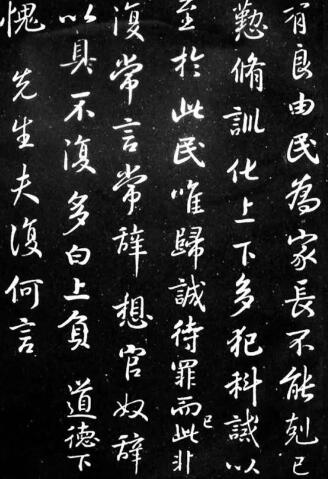 有良由民為家長不能剋己
懃脩訓化上下多犯科誡以
至於此民唯歸誠待罪而已此非
復常言常辭想官奴辭
以具不復多白上負 道德下
愧 先生夫復何言